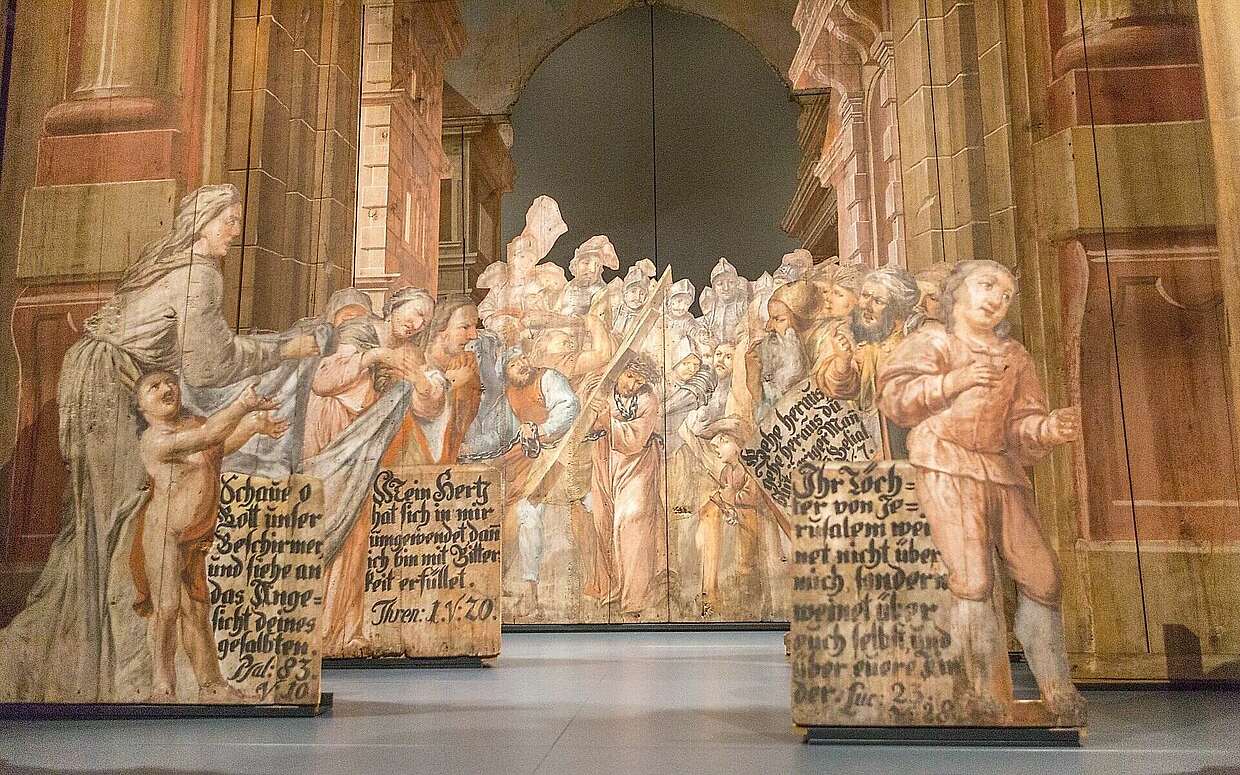 Schaue o
Gott unser
Beschirmer
und siehe an
das Ange-
sicht deines
gesalbten.
Psal: 83.
V. 10
Mein Hertz
hat sich in mir
umgewendet dañ
ich bin mit Bitter
keit erfüllet.
Thren: 1. V: 20.
Gehe heraus
gehe heraus du
Mañ
Belial
Ihr Töch-
ter von Je-
rusalem wei
net nicht über
mich, sondern
weinet über
euch selbst und
über euere Kin
der. Luc: 23.
28